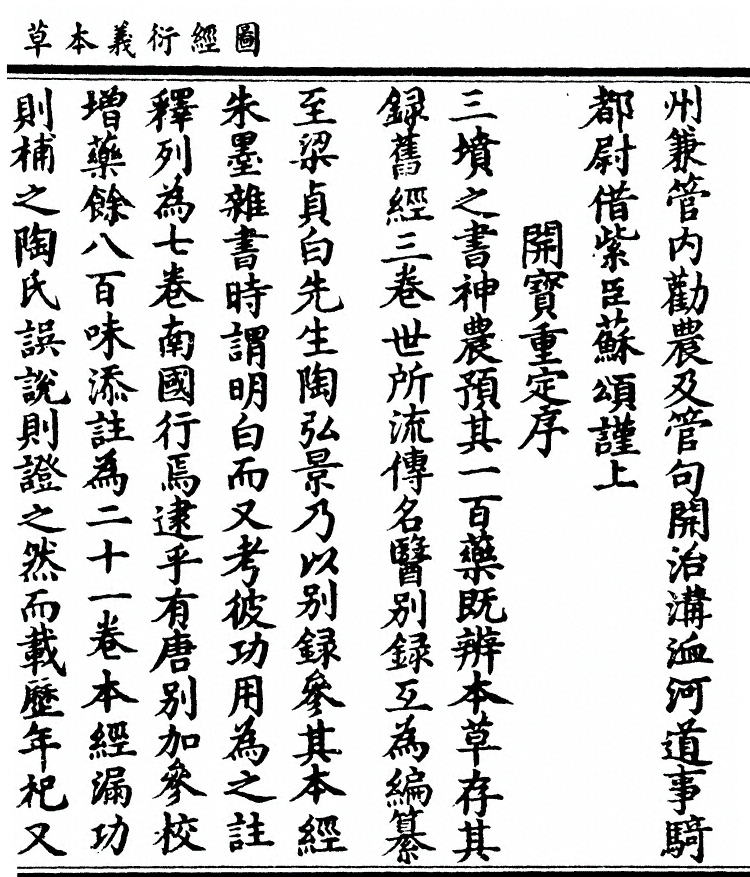 圖經衍義本草
州兼管内勸農及管句開治溝洫河道事騎
都尉借紫臣蘇頌謹上
開寶重定序
三墳之書神農預其一百藥既辨本草存其
録舊經三卷世所流傳名醫别録互為編纂
至梁貞白先生陶弘景乃以别録參其本經
朱墨雜書時謂明白而又考彼功用為之註
釋列為七卷南國行焉逮乎有唐别加參校
增藥餘八百味添註為二十一卷本經漏功
則補之陶氏誤說則證之然而載歷年祀又